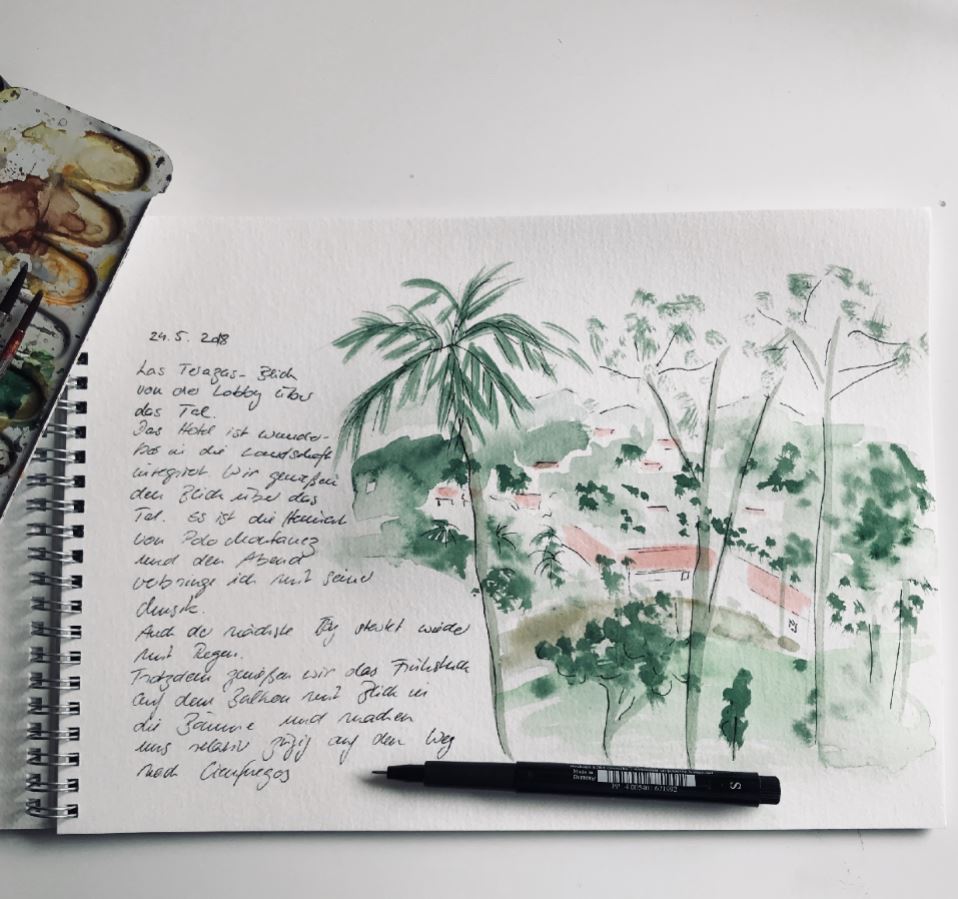 24.5. 2018
Las Terazas - Blick
von der Lobby über
das Tal.
Das Hotel ist wunder-
bar in die Landschaft
integriert. Wir genießen
den Blick über das
Tal. Es ist die Heimat
von Polo Montanez
und den Abend
verbringe ich mit seiner
Musik.
Auch der nächste Tag startet wieder
mit Regen.
Trotzdem genießen wir das Frühstück
auf dem Balkon mit Blick in
die Bäume und machen
uns relativ zügig auf den Weg
nach Cienfuegos
Made in
Germany
PP 4 005401 671992
S